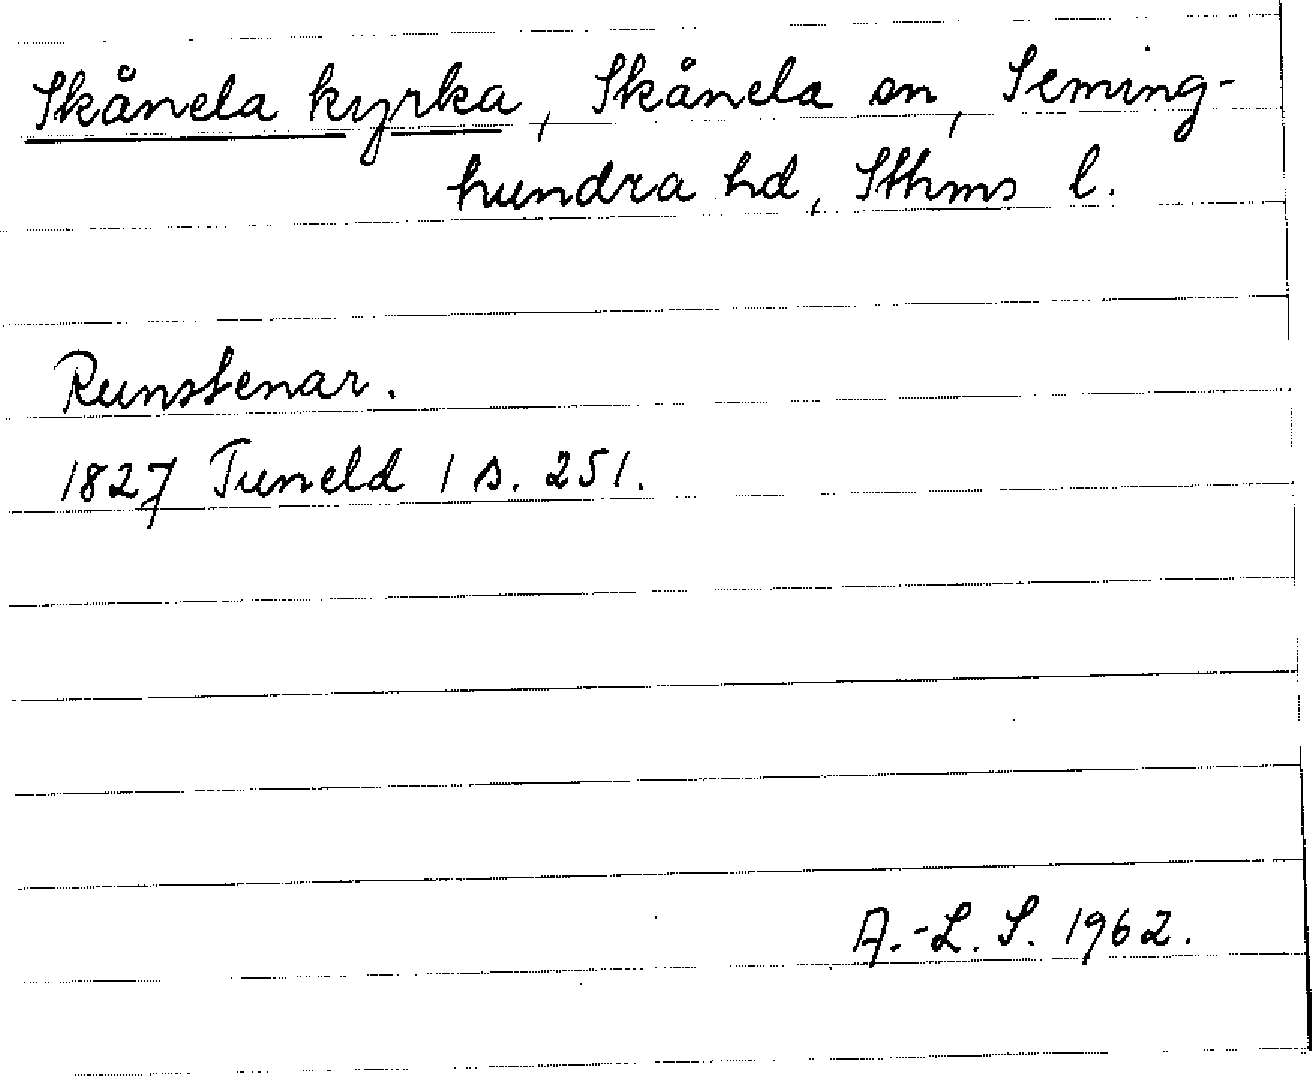 Skånela kyrka, Skånela sn, Seming-
hundra hd, Sthms l.
Runstenar.
1827 Tuneld 1 s. 251.
A.-L. S. 1962.